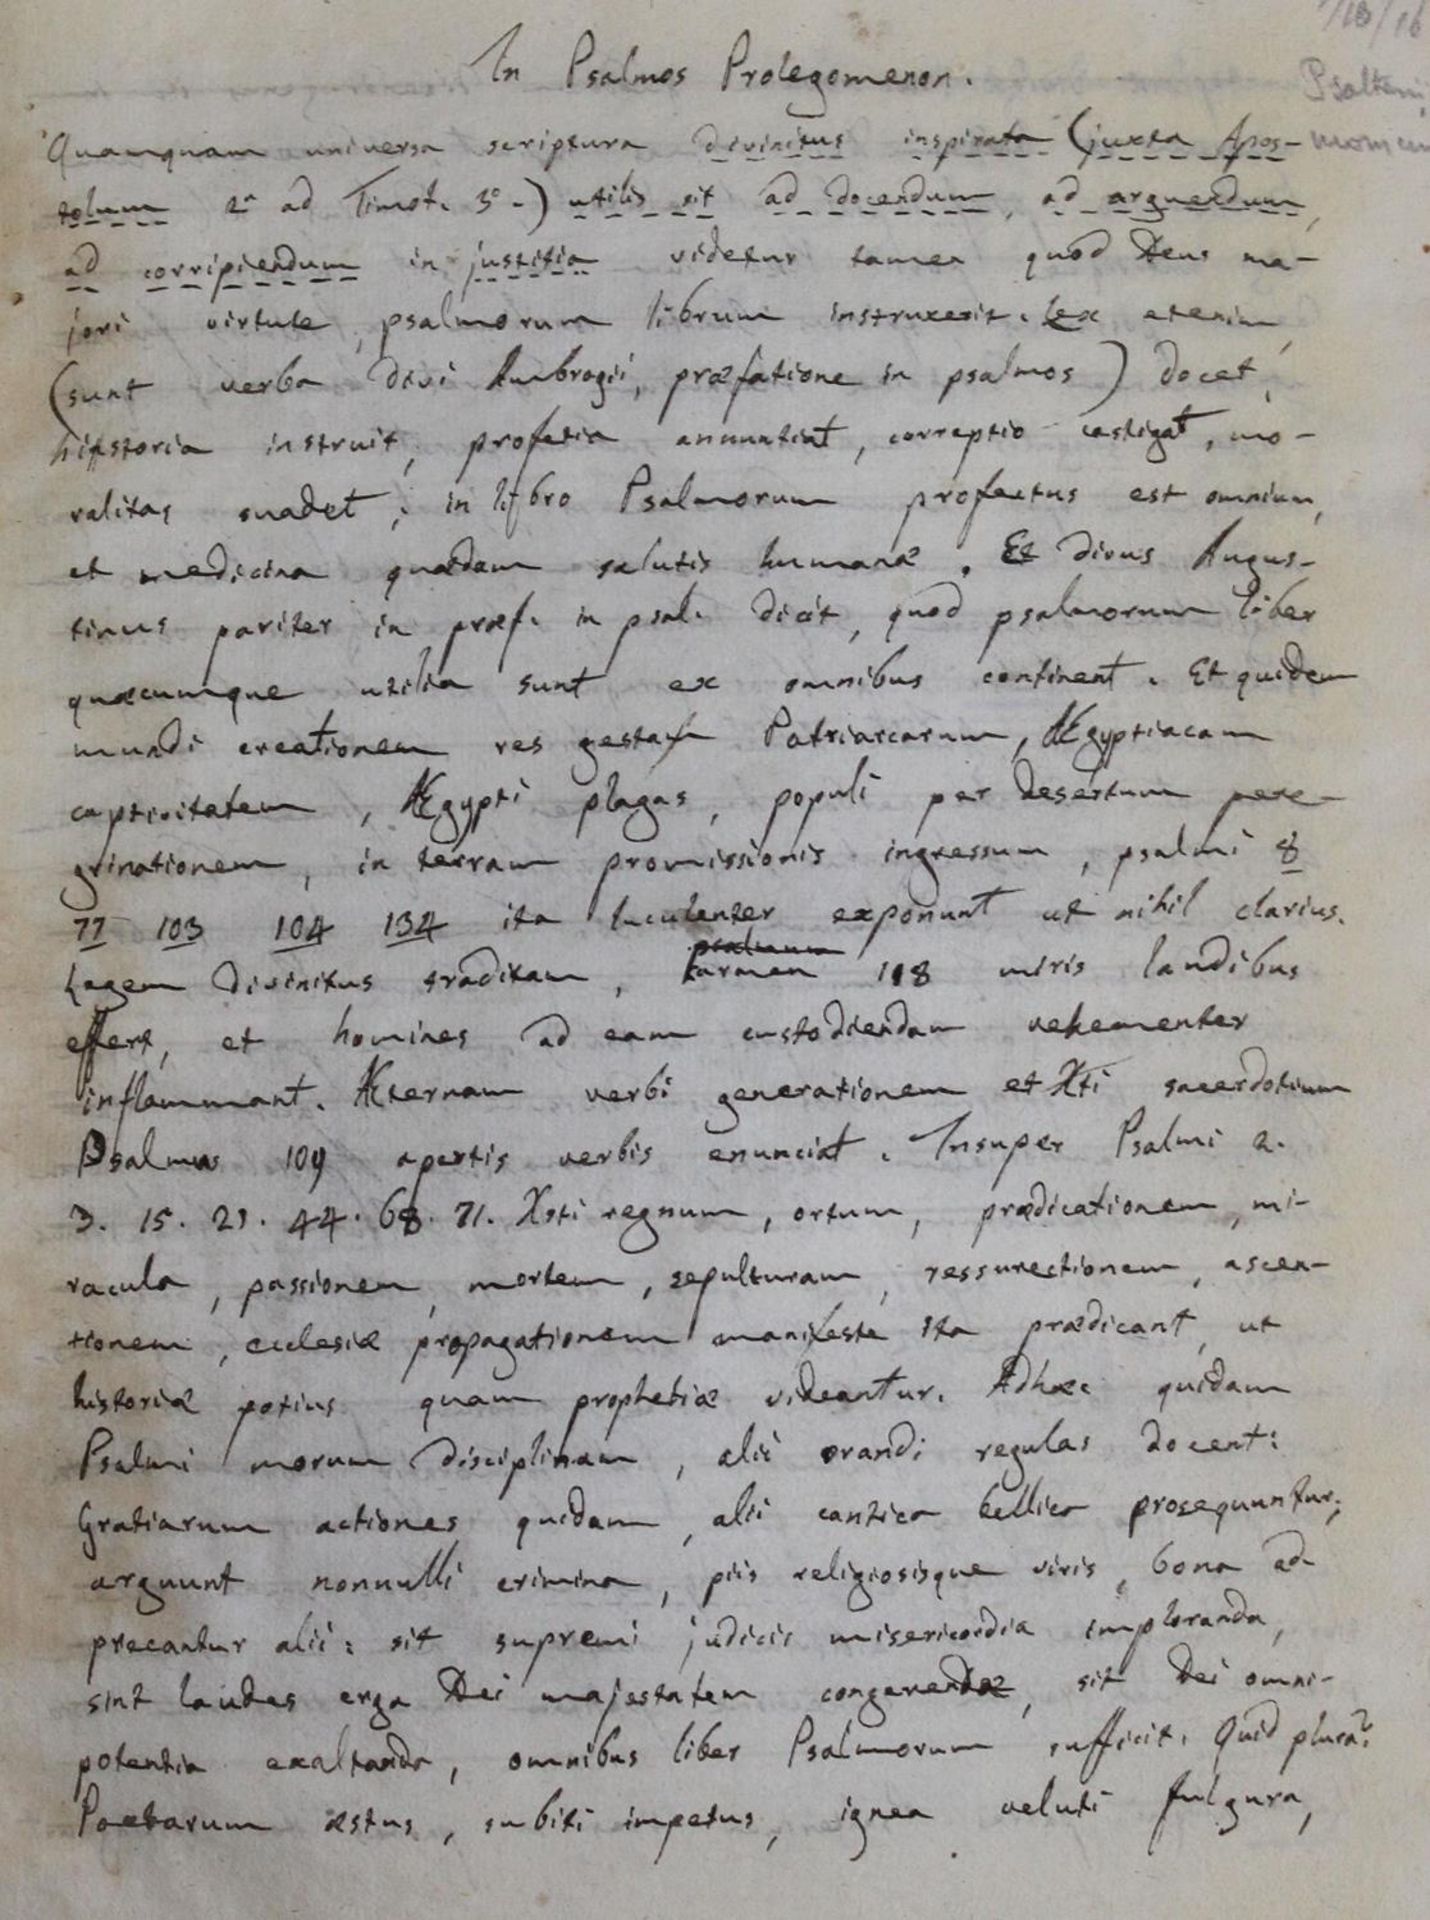 In Psalmos Prolegomenon.
Quamquam universa scriptura divinitus inspirata (juxta Apos-
tolum 2ª ad Timot. 3º.) utilis sit ad docendum, ad arguendum,
ad corripiendum in justitia videtur tamen quod Deus ma-
jori virtute, psalmorum librum instruxerit. Lex etenim,
(sunt verba divi Ambrogii, præfatione in psalmos) docet,
historia instruit, profetia annuntiat, correptio castigat, mo-
ralitas suadet; in libro Psalmorum profectus est omnium,
et medicina quædam salutis humanæ. Et divus Augus-
tinus pariter in præf. in psal. dicit, quod psalmorum liber
quæcumque utilia sunt ex omnibus continent. Et quidem
mundi creationem res gestas Patriarcarum, Ægyptiacam
captivitatem, Ægypti plagas, populi per desertum pere-
grinationem, in terram promissionis ingressum, psalmi 8
77 103 104 134 ita luculenter exponunt ut nihil clarius.
psalmum
Legem divinitus traditam, Carmen 118 miris laudibus
effert, et homines ad eam custodiendam vehementer
inflammant. Æternam verbi generationem et Xti sacerdotium
Psalmus 109 apertis verbis enunciat. Insuper Psalmi 2.
3. 15. 21. 44. 68. 71. Xsti regnum, ortum, prædicationem, mi-
racula, passionem, mortem, sepulturam, ressurectionem, ascen-
tionem, ecclesiæ propagationem manifeste ita prædicant, ut
historiæ potius quam prophetiæ videantur. Adhæc quidam
Psalmi morum disciplinam, alii orandi regulas docent:
Gratiarum actiones quidam, alii cantica bellica prosequuntur;
arguunt nonnulli crimina, piis religiosisque viris, bona ad-
precantur alii: sit supremi judicii misericordia imploranda,
sint laudes erga Dei majestatem congerendæ, sit Dei omni-
potentia exaltanda, omnibus liber Psalmorum sufficit. Quid plura?
Poetarum æstus, subiti impetus, ignea veluti fulgura,